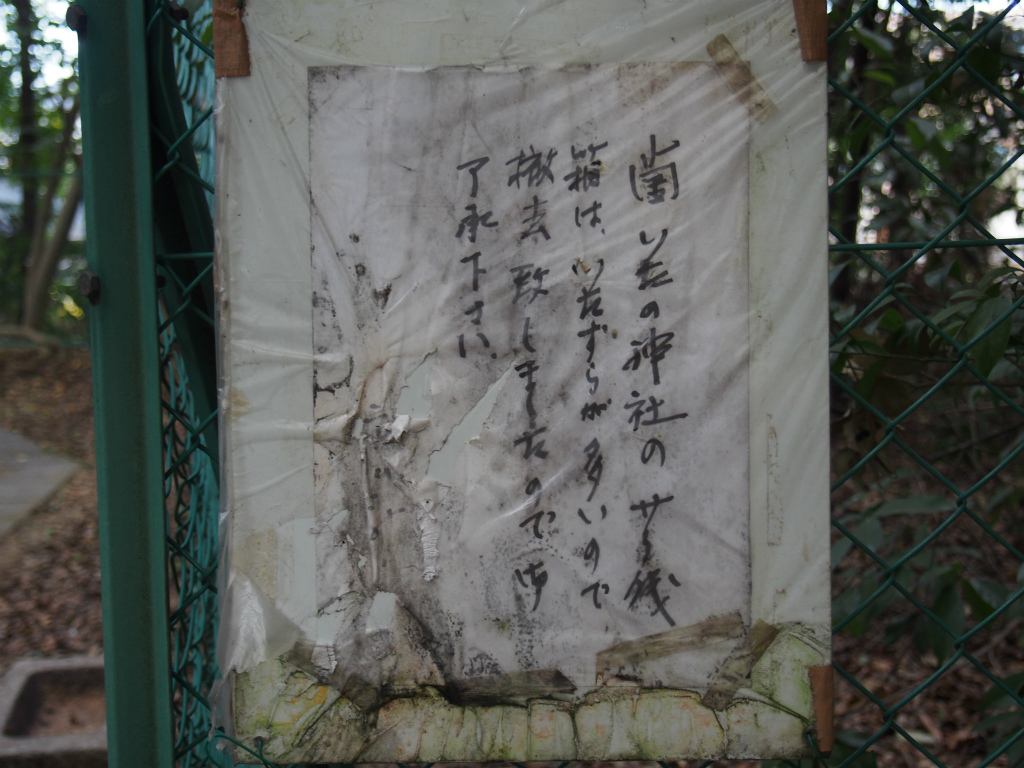 歯いたの神社のサイ銭
箱は、いたずらが多いので、
撤去致しましたので御
了承下さい、